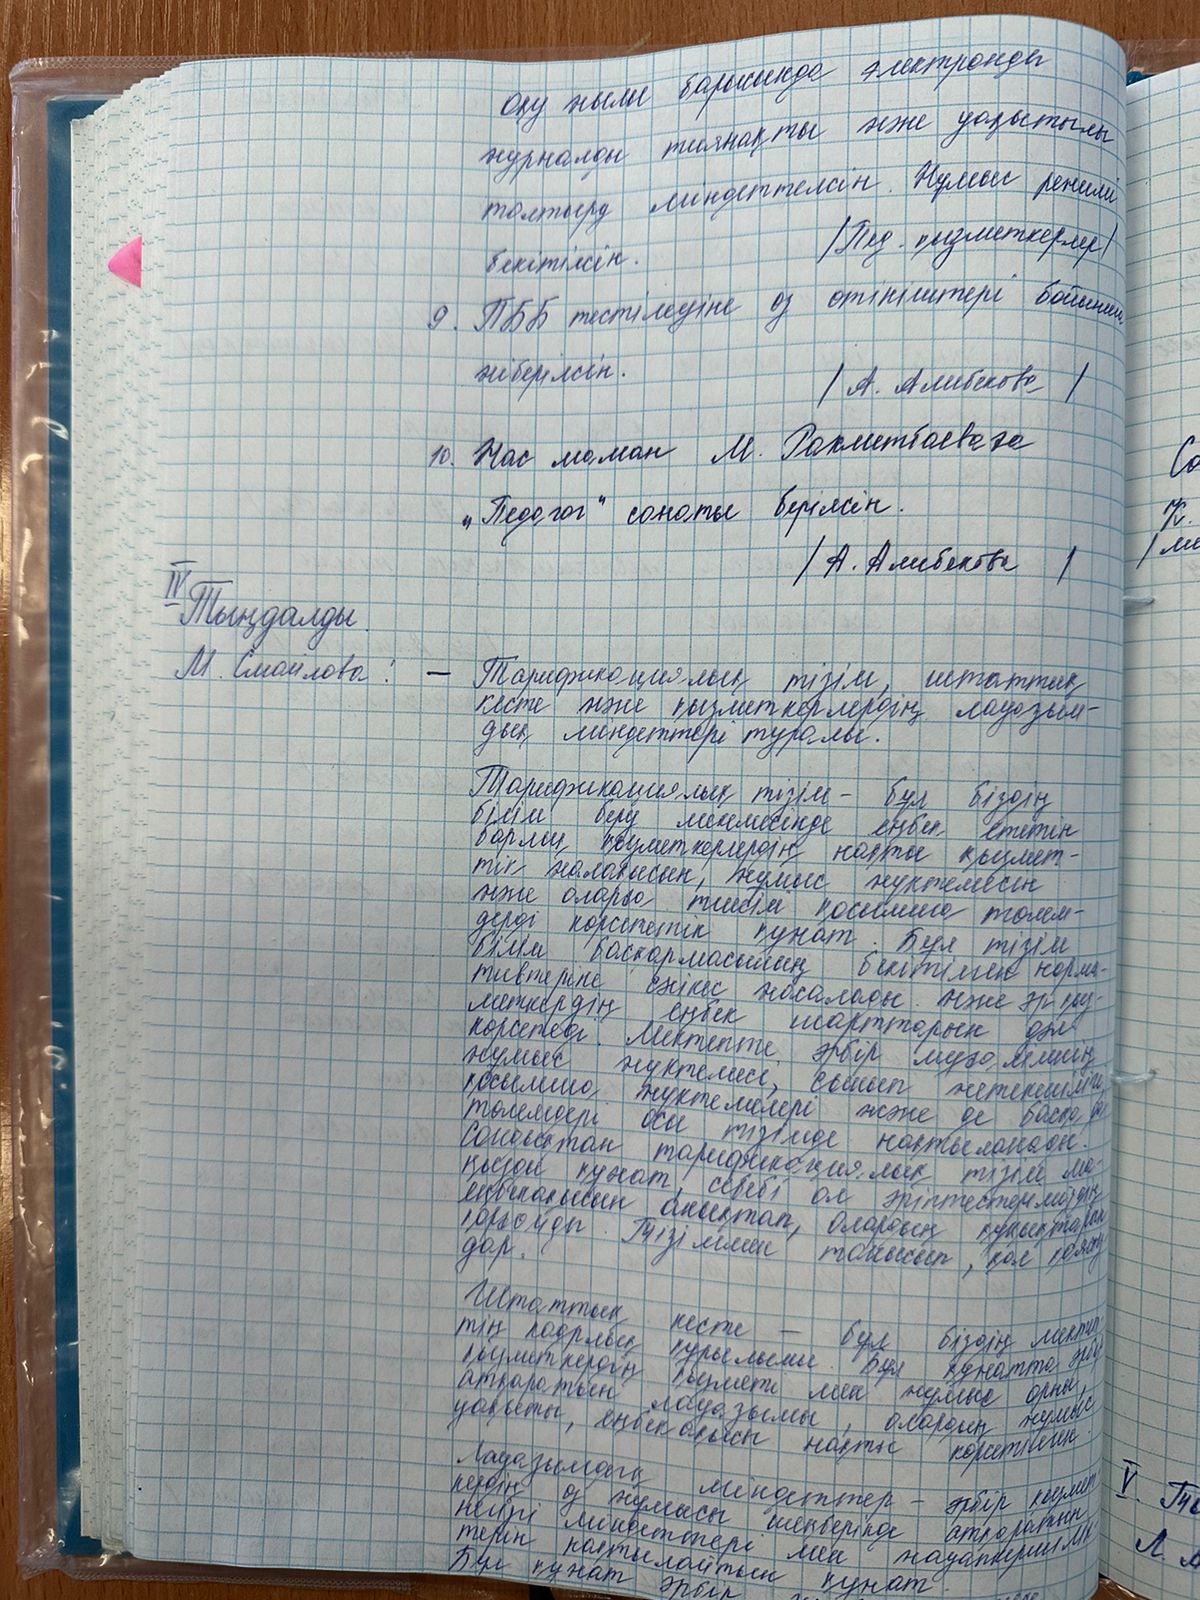 оқу жылы барысында электронды
журналды тиянақты және уақытылы
толтыру міндеттелсін. Жұмыс режимі
бекітілсін. /Пед. қызметкерлер/
9. ПББ тестілеуіне өз өтініштері бойынша
жіберілсін.
/ А. Алибекова /
10. Жас маман М. Рахметбаеваға
„Педагог" санаты берілсін.
/ А. Алибекова /
IV Тыңдалды
М. Смайлова: — Тарификациялық тізім, штаттық
кесте және қызметкерлердің лауазым-
дық міндеттері туралы.
Тарификациялық тізім – бұл біздің
білім беру мекемесінде еңбек ететін
барлық қызметкерлердің нақты қызмет-
тік жалақысын, жұмыс жүктемесін
және оларға тиісті қосымша төлем-
дерді көрсететін құжат. Бұл тізім
білім басқармасының бекітілген норма-
тивтеріне сәйкес жасалады және әр қыз-
меткердің еңбек шарттарын дәл
көрсетеді. Мектепте әрбір мұғалімнің
жұмыс жүктемесі, сынып жетекшілігі,
қосымша жүктемелері және де басқа
төлемдері осы тізімде нақтыланады.
Сондықтан тарификациялық тізім ма-
ңызды құжат, себебі ол әріптестеріміздің
еңбекақысын анықтап, олардың құқықтарын
қорғайды. Тізіммен танысып, қол қойыңыз-
дар.
Штаттық кесте – бұл біздің мектеп-
тің кадрлық құрылымы. Бұл құжатта әрбір
қызметкердің қызметі мен жұмыс орны,
атқаратын лауазымы, олардың жұмыс
уақыты, еңбекақысы нақты көрсетілген.
Лауазымдық міндеттер – әрбір қызмет-
кердің өз жұмысы шеңберінде атқаратын
негізгі міндеттері мен жауапкершілік-
терін нақтылайтын құжат.
Бұл құжат әрбір
V.